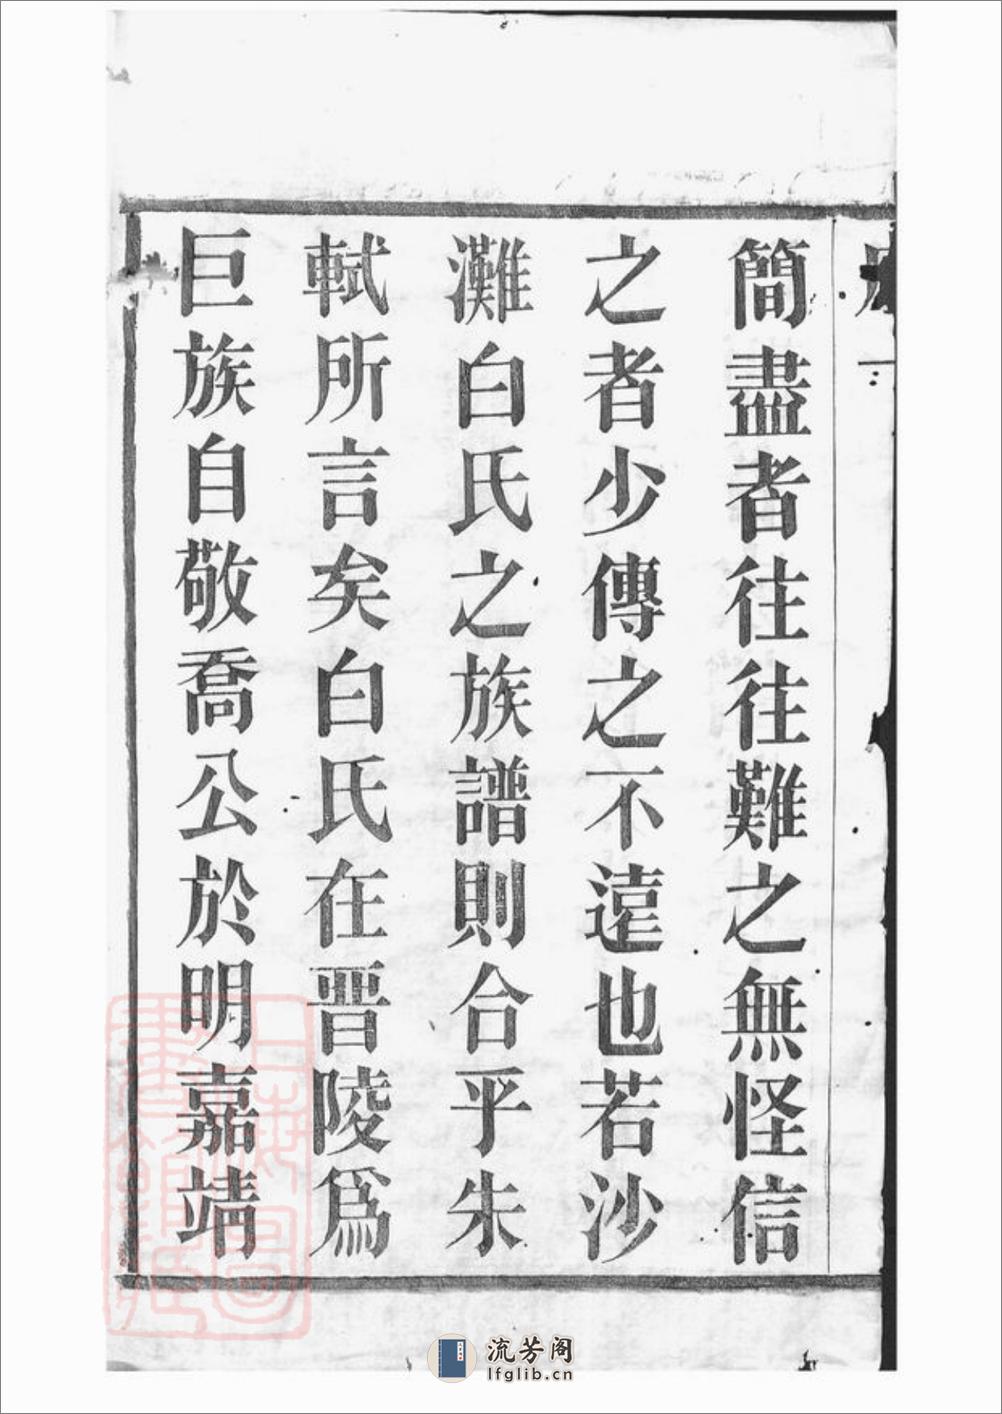 簡盡者往往難之無怪信
之者少傳之不遠也若沙
灘白氏之族譜則合乎朱
軾所言矣白氏在晋陵爲
巨族自敬喬公於明嘉靖
流芳阁
lfglib.cn